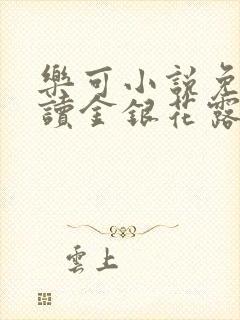 樂可小説免
讀金銀花露
雲上